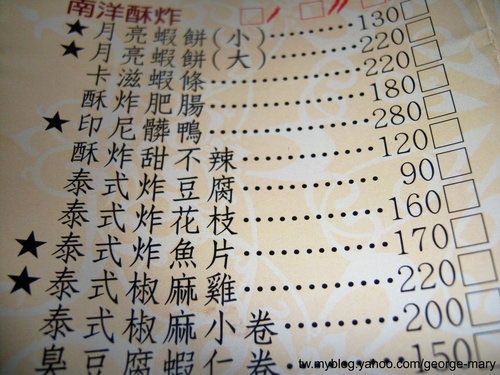 南洋酥炸
★月亮蝦餅(小)……130□
★月亮蝦餅(大)……220□
卡滋蝦條……220□
酥炸肥腸……180□
★印尼髒鴨……280□
酥炸甜不辣……120□
泰式炸豆腐……90□
泰式炸花枝……160□
★泰式炸魚片……170□
★泰式椒麻雞……220□
泰式椒麻小卷……200□
臭豆腐蝦仁卷……150□
tw.myblog.yahoo.com/george-mary